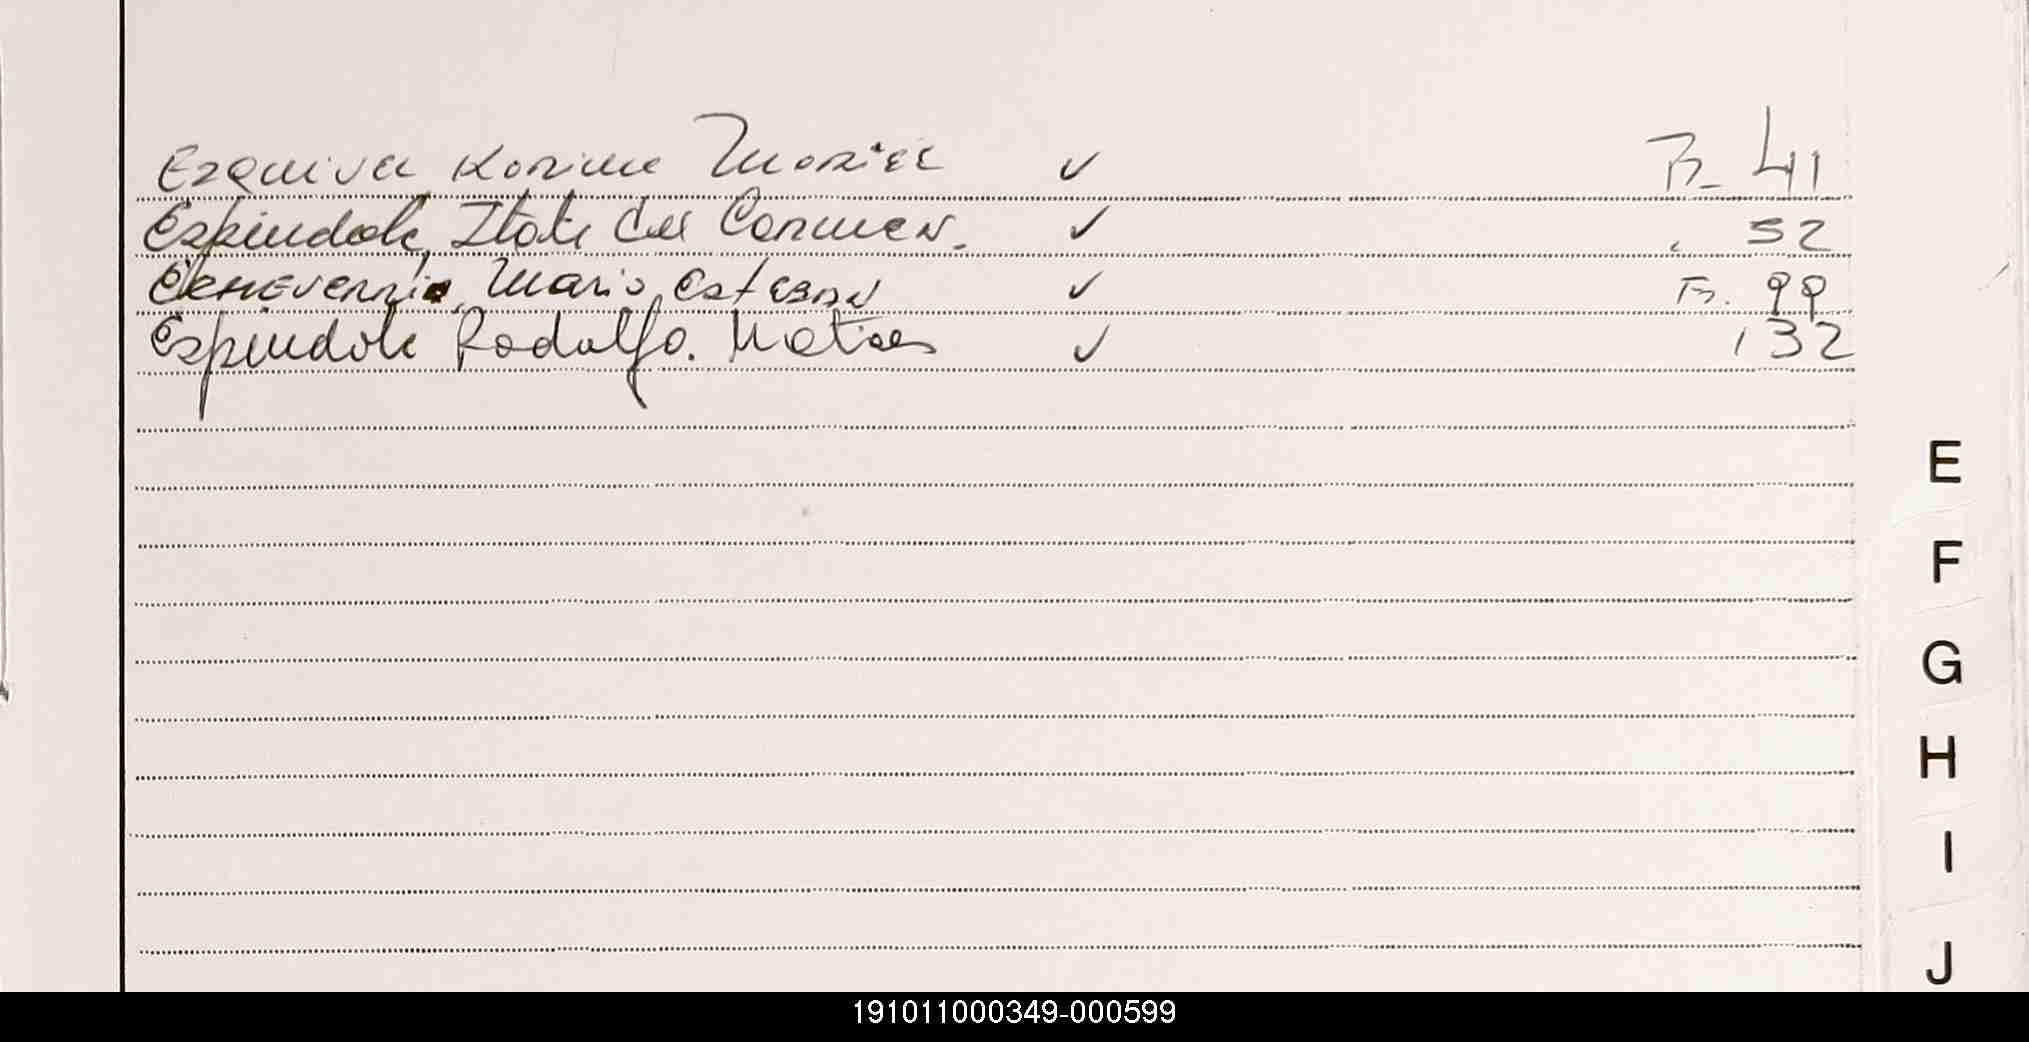 Ezquivel Korina Mariel ✓ B- 41
Espindola, Itati del Carmen. ✓ 52
Echeverria, Mario Esteban ✓ B. 99
Espindola Rodolfo. Matias ✓ 132
E
F
G
H
I
J
191011000349-000599